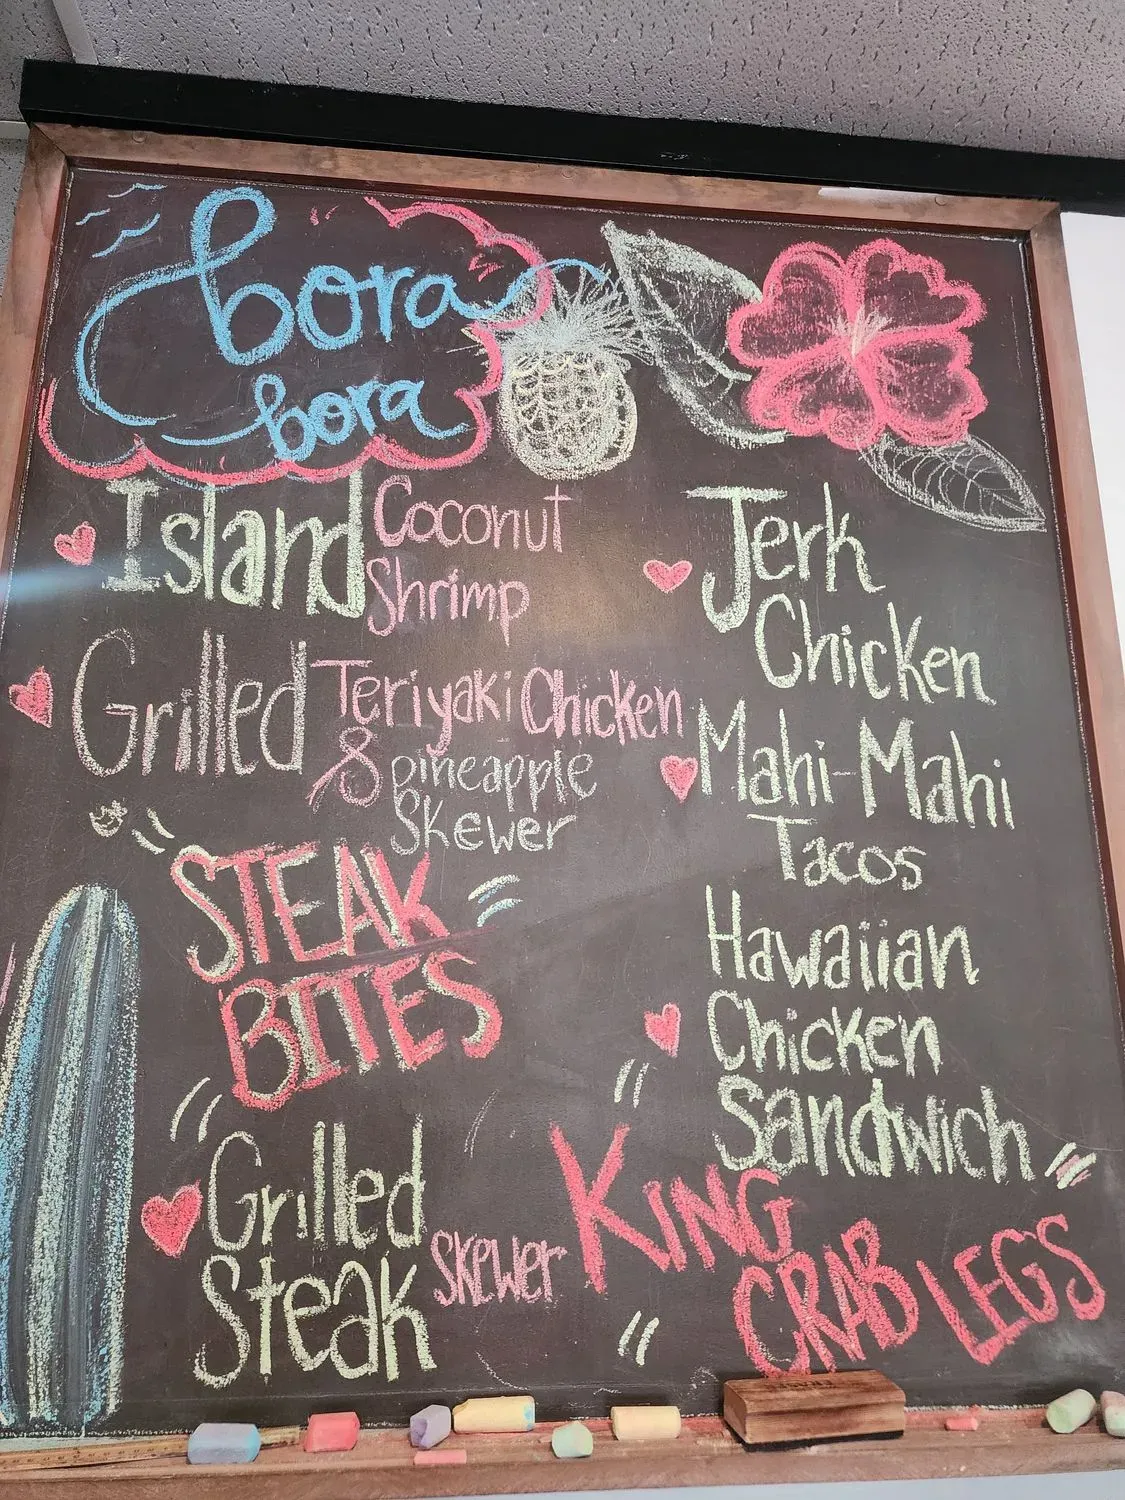 bora
bora
Island Coconut
Shrimp
Grilled Teriyaki Chicken
& pineapple
Skewer
STEAK
BITES
Grilled
Steak Skewer
Jerk
Chicken
Mahi-Mahi
Tacos
Hawaiian
Chicken
Sandwich
KING
CRAB LEGS